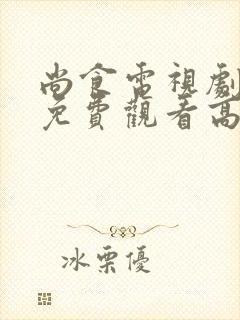 尚食電視劇
免費觀看高
冰栗優